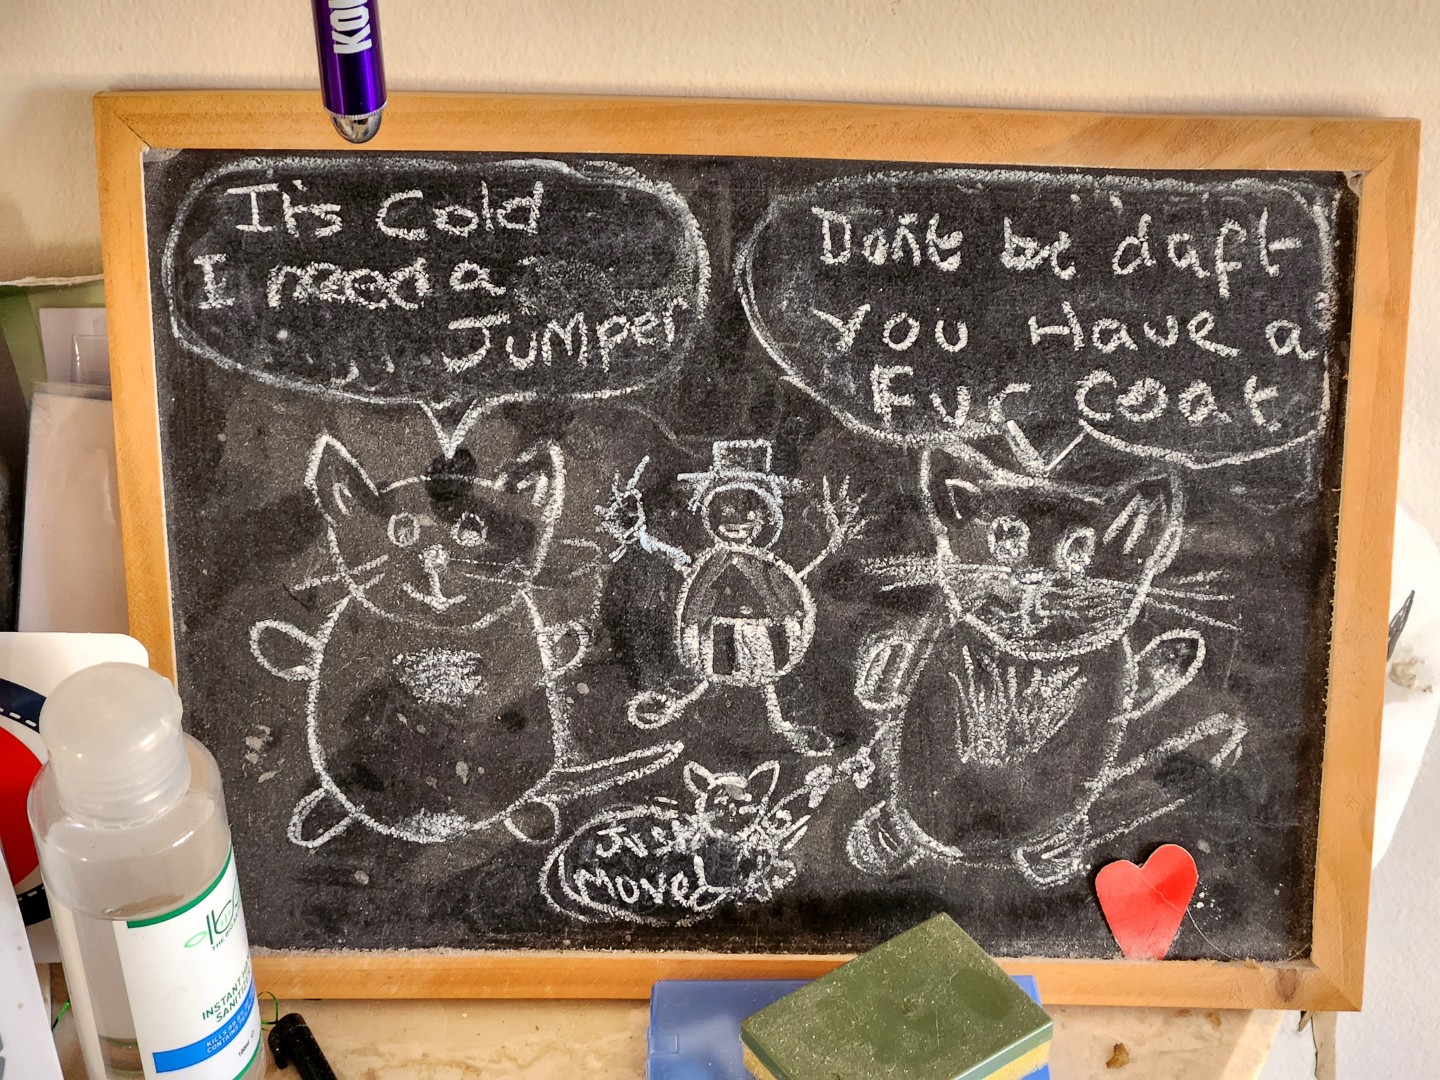 KOU
It's Cold
I need a
Jumper
Don't be daft
You Have a
Fur coat
Just
Moved
INSTANT
SANITI